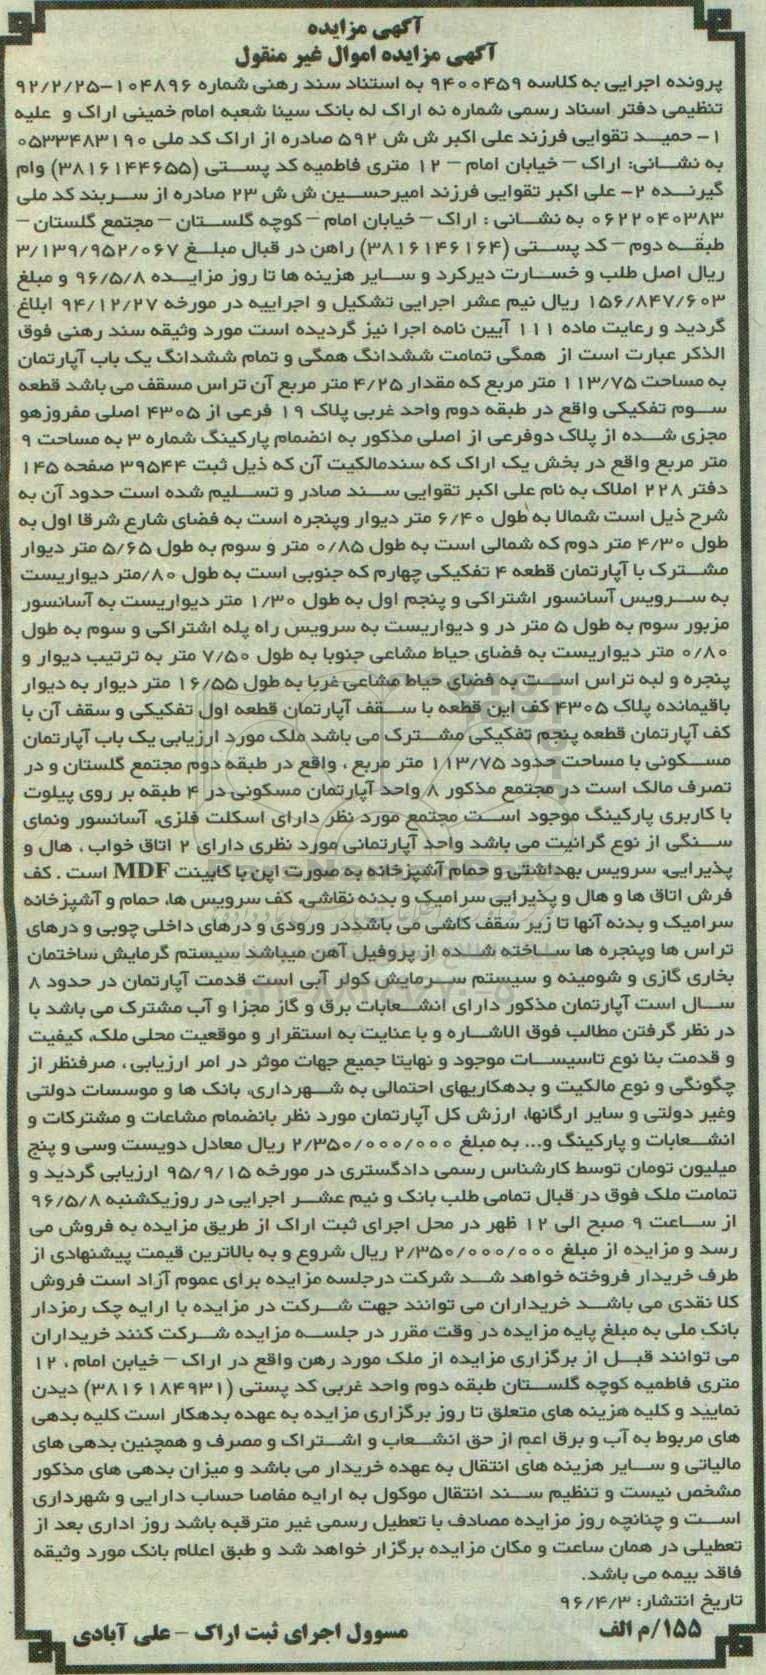 آگهی مزایده
آگهی مزایده اموال غیر منقول
پرونده اجرایی به کلاسه ۹۴۰۰۴۵۹ به استناد سند رهنی شماره ۱۰۴۸۹۶-۹۲/۲/۲۵
تنظیمی دفتر اسناد رسمی شماره نه اراک له بانک سینا شعبه امام خمینی اراک و علیه
۱- حمید تقوایی فرزند علی اکبر ش ش ۵۹۲ صادره از اراک کد ملی ۰۵۳۳۴۸۳۱۹۰
به نشانی: اراک – خیابان امام – ۱۲ متری فاطمیه کد پستی (۳۸۱۶۱۴۴۶۵۵) وام
گیرنده ۲- علی اکبر تقوایی فرزند امیرحسین ش ش ۲۳ صادره از سربند کد ملی
۰۶۲۲۰۴۰۳۸۳ به نشانی : اراک – خیابان امام – کوچه گلستان – مجتمع گلستان –
طبقه دوم – کد پستی (۳۸۱۶۱۴۶۱۶۴) راهن در قبال مبلغ ۳/۱۳۹/۹۵۲/۰۶۷
ریال اصل طلب و خسارت دیرکرد و سایر هزینه ها تا روز مزایده ۹۶/۵/۸ و مبلغ
۱۵۶/۸۴۷/۶۰۳ ریال نیم عشر اجرایی تشکیل و اجراییه در مورخه ۹۴/۱۲/۲۷ ابلاغ
گردید و رعایت ماده ۱۱۱ آیین نامه اجرا نیز گردیده است مورد وثیقه سند رهنی فوق
الذکر عبارت است از همگی تمامت ششدانگ همگی و تمام ششدانگ یک باب آپارتمان
به مساحت ۱۱۳/۷۵ متر مربع که مقدار ۴/۲۵ متر مربع آن تراس مسقف می باشد قطعه
سوم تفکیکی واقع در طبقه دوم واحد غربی پلاک ۱۹ فرعی از ۴۳۰۵ اصلی مفروزهو
مجزی شده از پلاک دوفرعی از اصلی مذکور به انضمام پارکینگ شماره ۳ به مساحت ۹
متر مربع واقع در بخش یک اراک که سندمالکیت آن که ذیل ثبت ۳۹۵۴۴ صفحه ۱۴۵
دفتر ۲۲۸ املاک به نام علی اکبر تقوایی سند صادر و تسلیم شده است حدود آن به
شرح ذیل است شمالا به طول ۶/۴۰ متر دیوار وپنجره است به فضای شارع شرقا اول به
طول ۴/۳۰ متر دوم که شمالی است به طول ۰/۸۵ متر و سوم به طول ۵/۶۵ متر دیوار
مشترک با آپارتمان قطعه ۴ تفکیکی چهارم که جنوبی است به طول ۸۰/متر دیواریست
به سرویس آسانسور اشتراکی و پنجم اول به طول ۱/۳۰ متر دیواریست به آسانسور
مزبور سوم به طول ۵ متر در و دیواریست به سرویس راه پله اشتراکی و سوم به طول
۰/۸۰ متر دیواریست به فضای حیاط مشاعی جنوبا به طول ۷/۵۰ متر به ترتیب دیوار و
پنجره و لبه تراس است به فضای حیاط مشاعی غربا به طول ۱۶/۵۵ متر دیوار به دیوار
باقیمانده پلاک ۴۳۰۵ کف این قطعه با سقف آپارتمان قطعه اول تفکیکی و سقف آن با
کف آپارتمان قطعه پنجم تفکیکی مشترک می باشد ملک مورد ارزیابی یک باب آپارتمان
مسکونی با مساحت حدود ۱۱۳/۷۵ متر مربع ، واقع در طبقه دوم مجتمع گلستان و در
تصرف مالک است در مجتمع مذکور ۸ واحد آپارتمان مسکونی در ۴ طبقه بر روی پیلوت
با کاربری پارکینگ موجود است مجتمع مورد نظر دارای اسکلت فلزی، آسانسور ونمای
سنگی از نوع گرانیت می باشد واحد آپارتمانی مورد نظری دارای ۲ اتاق خواب ، هال و
پذیرایی، سرویس بهداشتی و حمام آشپزخانه به صورت اپن با کابینت MDF است . کف
فرش اتاق ها و هال و پذیرایی سرامیک و بدنه نقاشی، کف سرویس ها، حمام و آشپزخانه
سرامیک و بدنه آنها تا زیر سقف کاشی می باشددر ورودی و درهای داخلی چوبی و درهای
تراس ها وپنجره ها ساخته شده از پروفیل آهن میباشد سیستم گرمایش ساختمان
بخاری گازی و شومینه و سیستم سرمایش کولر آبی است قدمت آپارتمان در حدود ۸
سال است آپارتمان مذکور دارای انشعابات برق و گاز مجزا و آب مشترک می باشد با
در نظر گرفتن مطالب فوق الاشاره و با عنایت به استقرار و موقعیت محلی ملک، کیفیت
و قدمت بنا نوع تاسیسات موجود و نهایتا جمیع جهات موثر در امر ارزیابی ، صرفنظر از
چگونگی و نوع مالکیت و بدهکاریهای احتمالی به شهرداری، بانک ها و موسسات دولتی
وغیر دولتی و سایر ارگانها، ارزش کل آپارتمان مورد نظر بانضمام مشاعات و مشترکات و
انشعابات و پارکینگ و... به مبلغ ۲/۳۵۰/۰۰۰/۰۰۰ ریال معادل دویست وسی و پنج
میلیون تومان توسط کارشناس رسمی دادگستری در مورخه ۹۵/۹/۱۵ ارزیابی گردید و
تمامت ملک فوق در قبال تمامی طلب بانک و نیم عشر اجرایی در روزیکشنبه ۹۶/۵/۸
از ساعت ۹ صبح الی ۱۲ ظهر در محل اجرای ثبت اراک از طریق مزایده به فروش می
رسد و مزایده از مبلغ ۲/۳۵۰/۰۰۰/۰۰۰ ریال شروع و به بالاترین قیمت پیشنهادی از
طرف خریدار فروخته خواهد شد شرکت درجلسه مزایده برای عموم آزاد است فروش
کلا نقدی می باشد خریداران می توانند جهت شرکت در مزایده با ارایه چک رمزدار
بانک ملی به مبلغ پایه مزایده در وقت مقرر در جلسه مزایده شرکت کنند خریداران
می توانند قبل از برگزاری مزایده از ملک مورد رهن واقع در اراک – خیابن امام ، ۱۲
متری فاطمیه کوچه گلستان طبقه دوم واحد غربی کد پستی (۳۸۱۶۱۸۴۹۳۱) دیدن
نمایید و کلیه هزینه های متعلق تا روز برگزاری مزایده به عهده بدهکار است کلیه بدهی
های مربوط به آب و برق اعم از حق انشعاب و اشتراک و مصرف و همچنین بدهی های
مالیاتی و سایر هزینه های انتقال به عهده خریدار می باشد و میزان بدهی های مذکور
مشخص نیست و تنظیم سند انتقال موکول به ارایه مفاصا حساب دارایی و شهرداری
است و چنانچه روز مزایده مصادف با تعطیل رسمی غیر مترقبه باشد روز اداری بعد از
تعطیلی در همان ساعت و مکان مزایده برگزار خواهد شد و طبق اعلام بانک مورد وثیقه
فاقد بیمه می باشد.
تاریخ انتشار: ۹۶/۴/۳
۱۵۵/م الف
مسوول اجرای ثبت اراک – علی آبادی